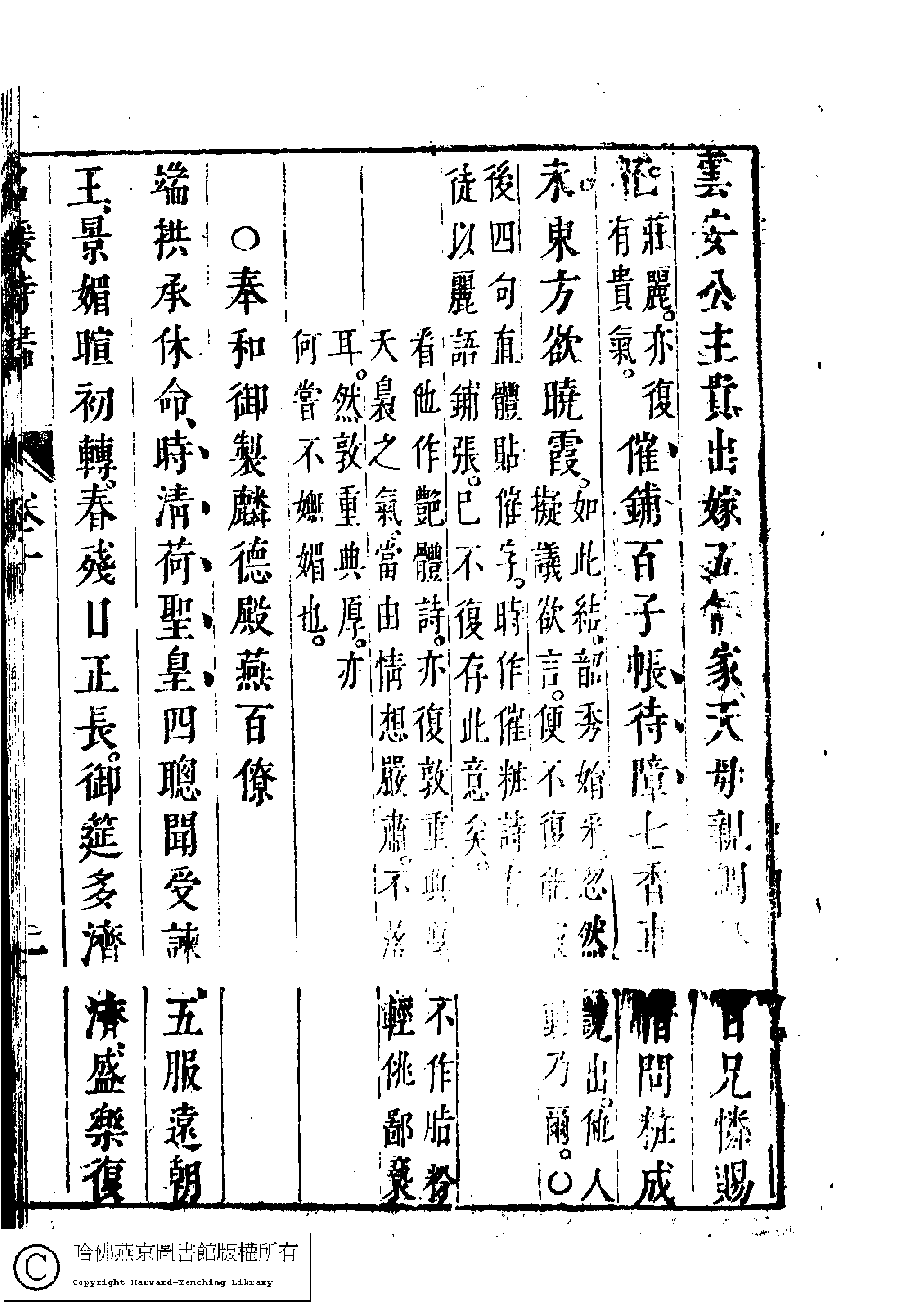 雲安公主貴出嫁五侯家天母親調日兄憐賜
花莊麗。亦復
有貴氣。
催鋪百子帳待障七香車借問粧成
未。東方欲曉霞。
如此結。韶秀婚釆。忽然說出。他人
擬議欲言。便不復能動乃爾。○
後四句有體貼催字。時作催粧詩者
徒以麗語鋪張。已不復存此意矣。
看他作艷體詩。亦復敦重典厚不作脂粉
天裊之氣。當由情想嚴肅。不落輕佻鄙褻
耳。然敦重典厚。亦
何嘗不嫵媚也。
○奉和御製麟德殿燕百僚
端拱承休命、時清荷聖皇四聰聞受諫五服遠朝
王、景媚暄初轉。春殘日正長。御筵多濟濟、盛樂復
名媛詩歸
二
哈佛燕京圖書館版權所有
Copyright Harvard-Yenching Library